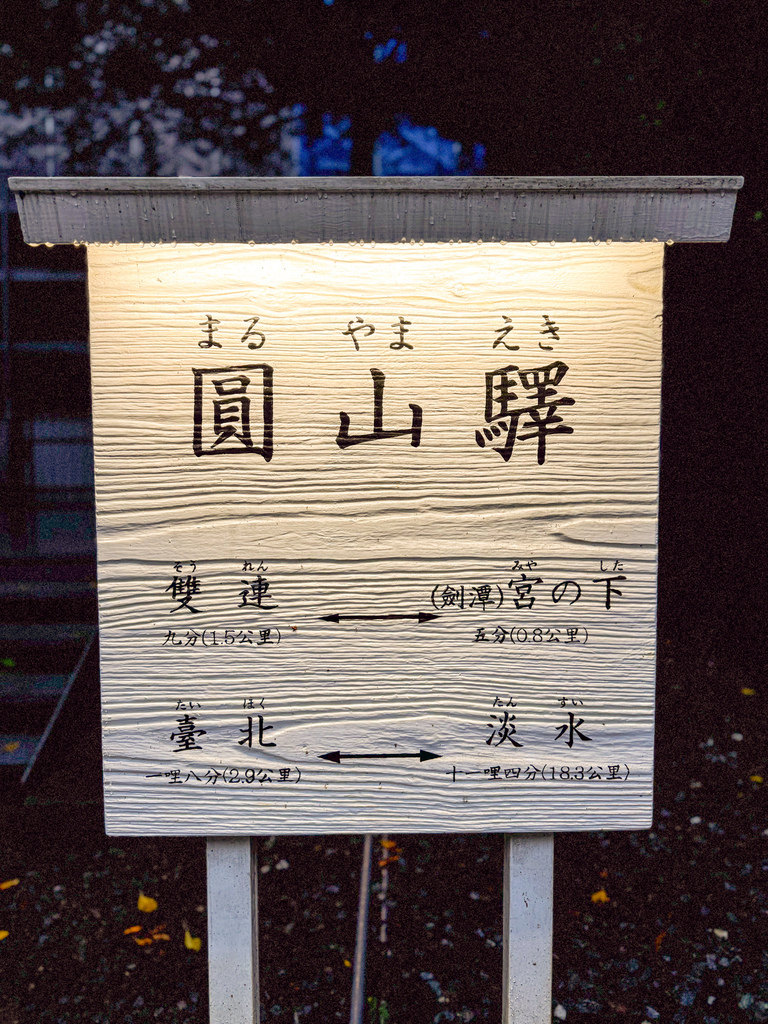 まる やま えき
圓 山 驛
そう れん みや した
雙 連 (劍潭)宮の下
九分(1.5公里) 五分(0.8公里)
たい ほく たん すい
臺 北 淡 水
一哩八分(2.9公里) 十一哩四分(18.3公里)